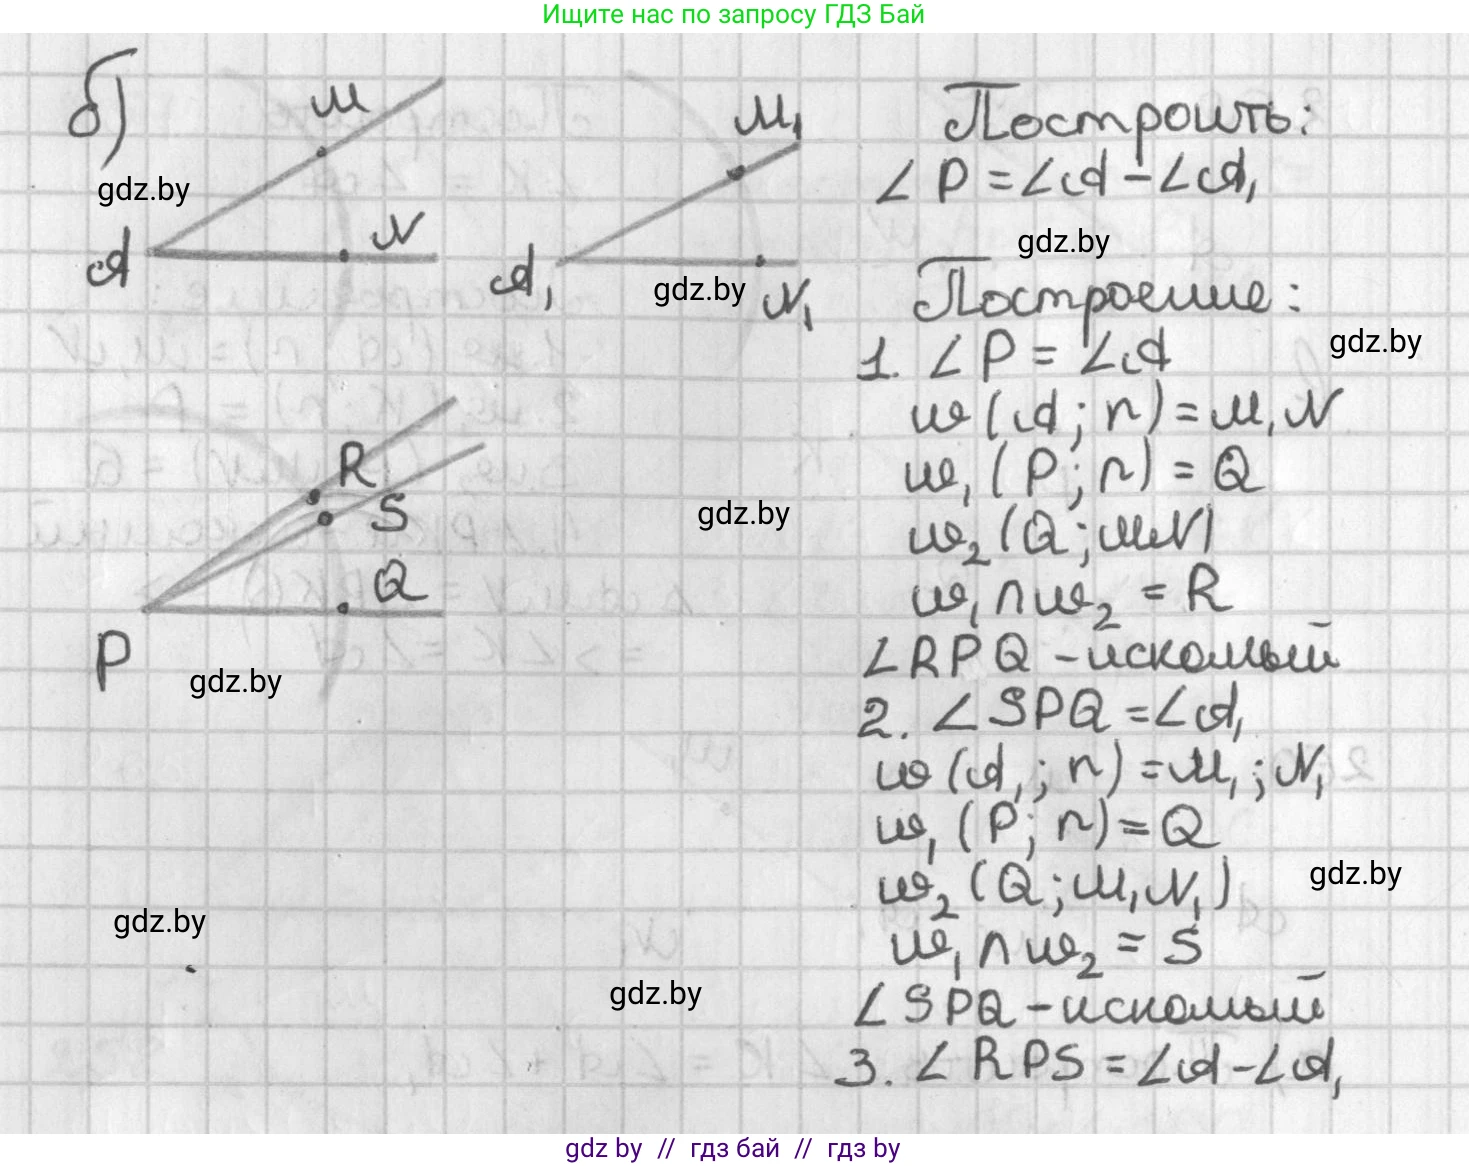 Ищите нас по запросу ГДЗ Бай
б)
M
N
A
M₁
A₁
N₁
gdz.by
gdz.by
Построить:
∠P = ∠A - ∠A₁
gdz.by
Построение:
gdz.by
1. ∠P = ∠A
ω(A; r) = M, N
ω₁(P; r) = Q
ω₂(Q; MN)
ω₁ ∩ ω₂ = R
∠RPQ - искомый
2. ∠SPQ = ∠A₁
ω(A₁; r) = M₁; N₁
ω₁(P; r) = Q
ω₂(Q; M₁N₁)
ω₁ ∩ ω₂ = S
∠SPQ - искомый
3. ∠RPS = ∠A - ∠A₁
R
S
Q
P
gdz.by
gdz.by
gdz.by
gdz.by
gdz.by
gdz by // гдз бай // гдз by